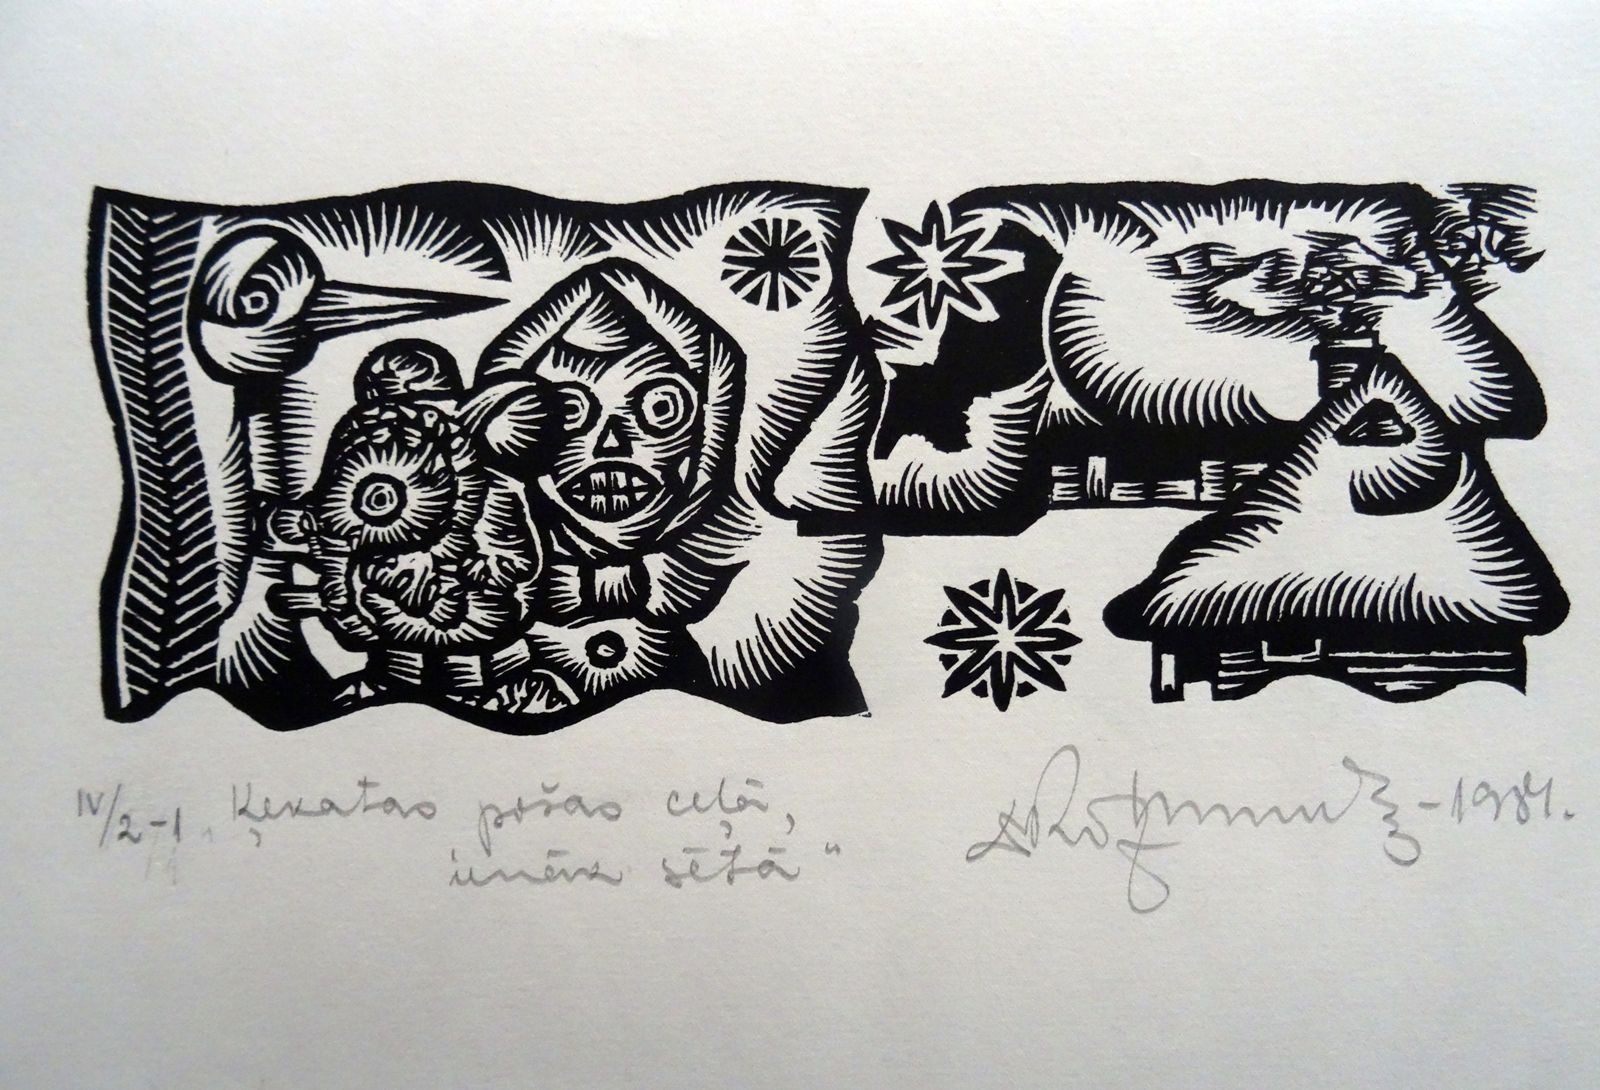 IV/2-1 „Ķekatas pošas ceļā,
ienāk sētā“
-1984.